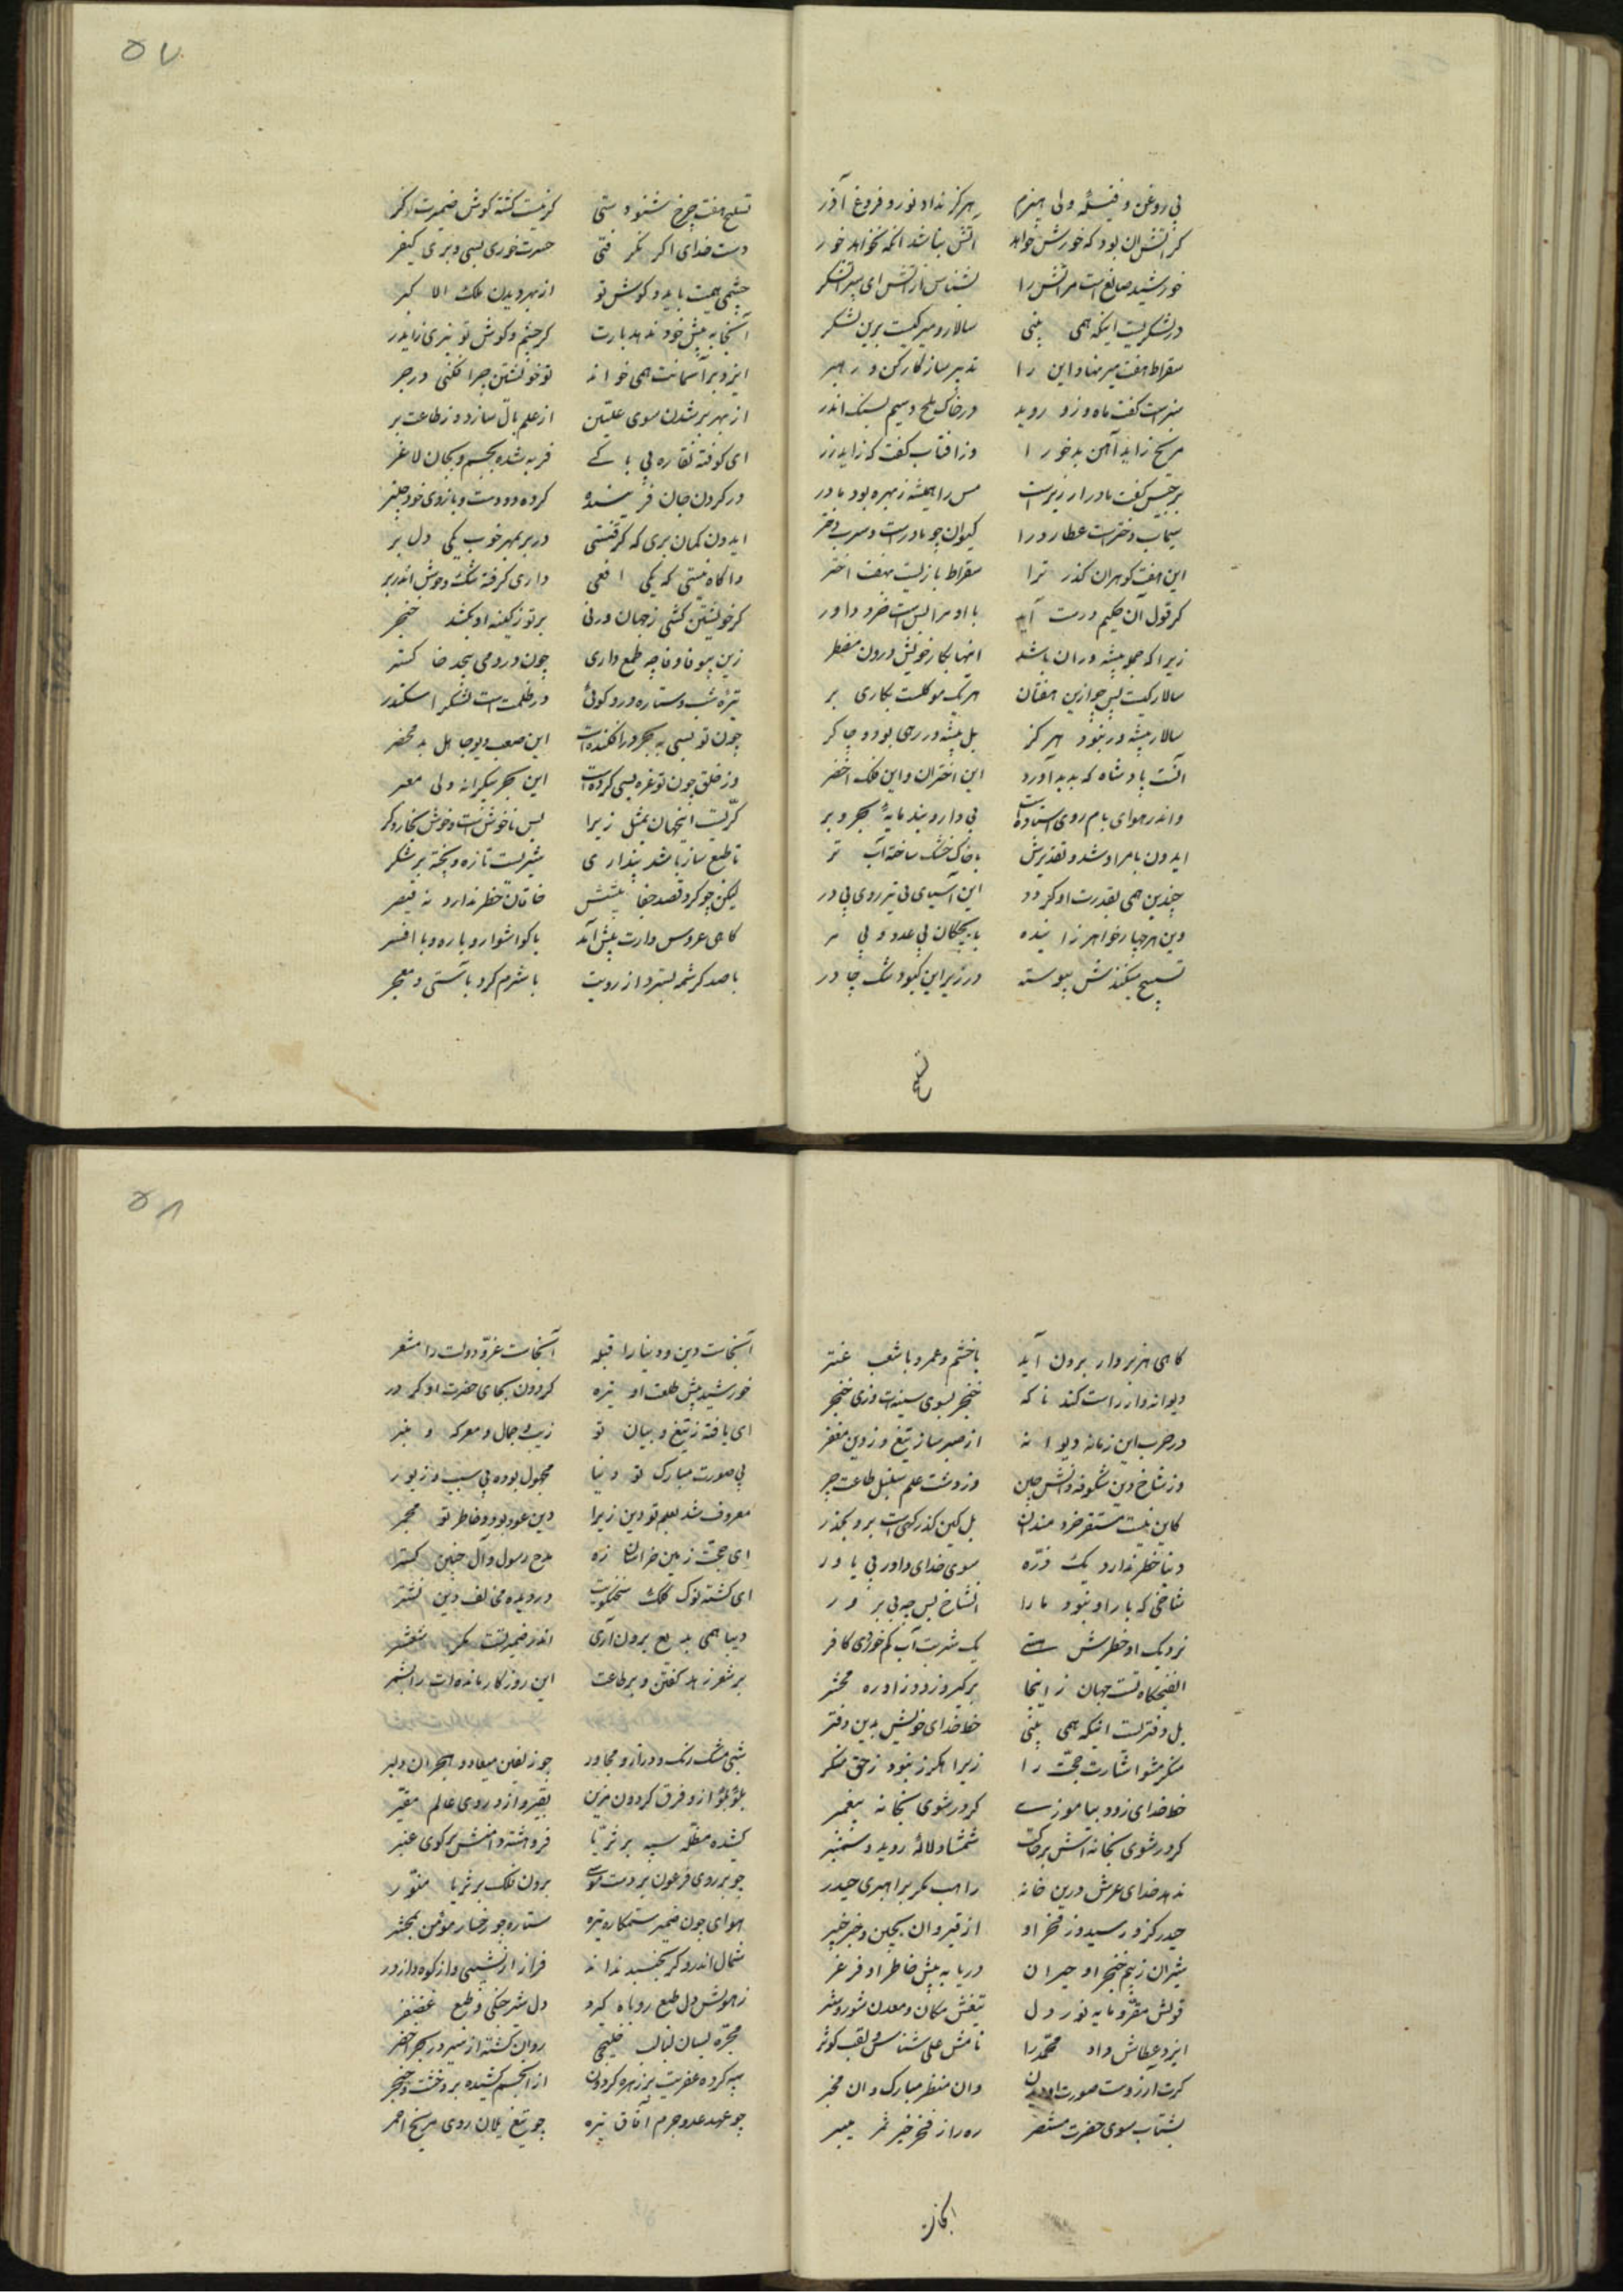 ۵۷
بی روغن و فتیله و بی هیزم هرگز نداد نور و فروغ آذر
گر آتش آن بود که خورش خواهد آتش نباشد آنکه نخواهد خور
خورشید صانع است مر آتش را بشناس از آتش ای پسر آتشگر
در لشکریست اینکه همی بینی سالار و میر کیست برین لشکر
سقراط هفت میر نهاد این را تدبیر ساز کارکن و رهبر
سبز است گفت ماه و زو روید در خاک ملح و سیم بسنگ اندر
مریخ زاید آهن بدخو را وز آفتاب گفت که زاید زر
برجیس گفت مادر ارزیز است مس را همیشه زهره بود مادر
سیماب دختر است عطارد را کیوان چو مادر است و سرب دختر
این هفت گوهران گذر ترا سقراط باز بست بهفت اختر
گر قول آن حکیم درست آید با او مرا بس است خرد داور
زیرا که جمع پیشه وران باشد اینها بکار خویش درون مضطر
سالار کیست پس چو ازین هفتان هریک موکلست بکاری بر
سالار پیشه ور نبود هرگز بل پیشه ور رهی بود و چاکر
آنست پادشاه که پدید آورد این اختران و این فلک اخضر
واندر هوای بام روی استاده است بی دار و بند مایهٔ بحر و بر
ایدون بامر او شد و تقدیرش با خاک خشک ساخته آب تر
چندین همی بقدرت او گردد این آسیای تیز روی بی در
وین هر چهار خواهر زاینده با بچگان بی عدد و بی مر
تسبیح میکنندش پیوسته در زیر این کبود تنک چادر
تسبیح هفت چرخ شنودستی گر نیست گشته گوش ضمیرت کر
دست خدای اگر نگرفتی حسرت خوری بسی و بری کیفر
چشمیت باید و گوش نو از بهر دیدن ملک اکبر
آنجا به پیش خود ندهد بارت گر چشم و گوش تو نبری زایدر
ایزد بر آسمانت همی خواند تو خویشتن چرا فکنی در جر
از بهر بر شدن سوی علیین از علم بال ساز و ز طاعت پر
ای کوفته نقاره بی باکی فربه شده بجسم و بجان لاغر
در گردن جان فریبنده کرده دو دست و بازوی خود چنبر
ایدون گمان بری که گرفتستی در بر بمهر خوب یکی دلبر
واگاه نیستی که یکی افعی داری گرفته تنگ و خوش اندر بر
گر خویشتن کشی ز جهان ورنی بر تو ز کینه او بکشد خنجر
زین بیوفا وفا چه طمع داری چون در دمی بجد خاکستر
تیره شب و ستاره در او گوئی در ظلمت است لشکر اسکندر
چون تو بسی به بحر در افکنده است این صعب دیو جاهل بد محضر
وز خلق چون تو غرقه بسی کرده است این بحر بیکرانه و بی معبر
گریست این جهان بمثل زیرا بس ناخوش است و خوش بخارد گر
تا طبع ساز باشد پنداری شیریست تازه و پخته پر شکر
لیکن چو کرد قصد جفا پیشش خاقان خطر ندارد نه قیصر
گاهی عروس وارت پیش آید با گوشوار و یاره و با افسر
با صد کرشمه بسترد از رویت با شرم گرد بآستی و معجر
گاهی
۵۸
گاهی هزبروار برون آید با خشم و عمرو با شغب عنتر
دیوانه وار راست کند ناگه خنجر بسوی سینه ات زی خنجر
در حرب این زمانه دیوانه از صبر ساز تیغ و ز دین مغفر
وز شاخ دین شکوفه دانش چین وز دشت علم سنبل طاعت چر
کاین نیست مستقر خردمندان بل کاین گذرگهی است برو بگذر
دنیا خطر ندارد یک ذره سوی خدای داور بی یاور
شاخی که بار او نبود ما را آن شاخ پس چه بی بر و بر
نزدیک او خطرش هستی یک شربت آب کم خوردی کافر
الفنجگاه تست جهان زاینجا برگیر زود زاد ره محشر
بل دفتریست اینکه همی بینی خط خدای خویش بدین دفتر
منکر مشو اشارت حجت را زیرا هگرز نبود ز حق منکر
خط خدای زود بیاموزی گر در شوی بخانه پیغمبر
گر در شوی بخانه اش بر خاکت شمشاد و لاله روید و سیسنبر
ندهد خدای عرش درین خانه راهت مگر براهبری حیدر
حیدر کزو رسید و ز فخر او از قیروان بچین خبر خیبر
شیران ز بیم خنجر او حیران دریا به پیش خاطر او فرغر
قولش مقر و مایه نور دل تیغش مکان و معدن شور و شر
ایزد عطاش داد محمد را نامش علی شناس و لقب کوثر
گرت آرزوست صورت او دیدن وان منظر مبارک وان مخبر
بشتاب سوی حضرت مستنصر ره را ز فخر جز بمژه مسپر
آنجاست دین و دنیا را قبله آنجاست عز و دولت را مشعر
خورشید پیش طلعت او تیره گردون بجای حضرت او کردر
ای یافته ز تیغ و بیان تو زیب و جمال معرکه و منبر
بی صورت مبارک تو دنیا مجهول بوده بی سبب و زیور
معروف شد بعلم تو دین زیرا دین عود بود و خاطر تو مجمر
ای حجت زمین خراسان زه مدح رسول و آل چنین گستر
ای گشته نوک کلک سخنگویت در دیده مخالف دین نشتر
دیبا همی بدیع برون آری اندر ضمیر تست مگر ششتر
بر شعر زهد گفتن و بر طاعت این روزگار مانده ات را بشمر
شبی مشک رنگ و دراز و مجاور چو زلفین میعاد و هجران دلبر
بلؤلؤ ازو فرق گردون مزین بقیر ازو روی عالم مقیر
کشیده مظله سیه بر ثریا فروهشته دامنش بر گوی عنبر
چو بر روی فرعون بر دست موسی برون فلک بر ثریا منور
هوای چون ضمیر ستمکاره تیره ستاره چو رخسار مؤمن بمحشر
شمال اندرو گر بجنبد نداند فراز از نشیب و از کوه وادر
ز هولش دل طبع روباه گیرد دل شیر جنگی و طبع غضنفر
مجره بسان لبالب خلیجی روان گشته از شیر در بحر اخضر
سیه کرده عفریت بر زهره گردون از انجم کشیده بر و خشت و خنجر
چو عهد عدو جرم آفاق تیره چو تیغ یلان روی مریخ احمر
آنجاست